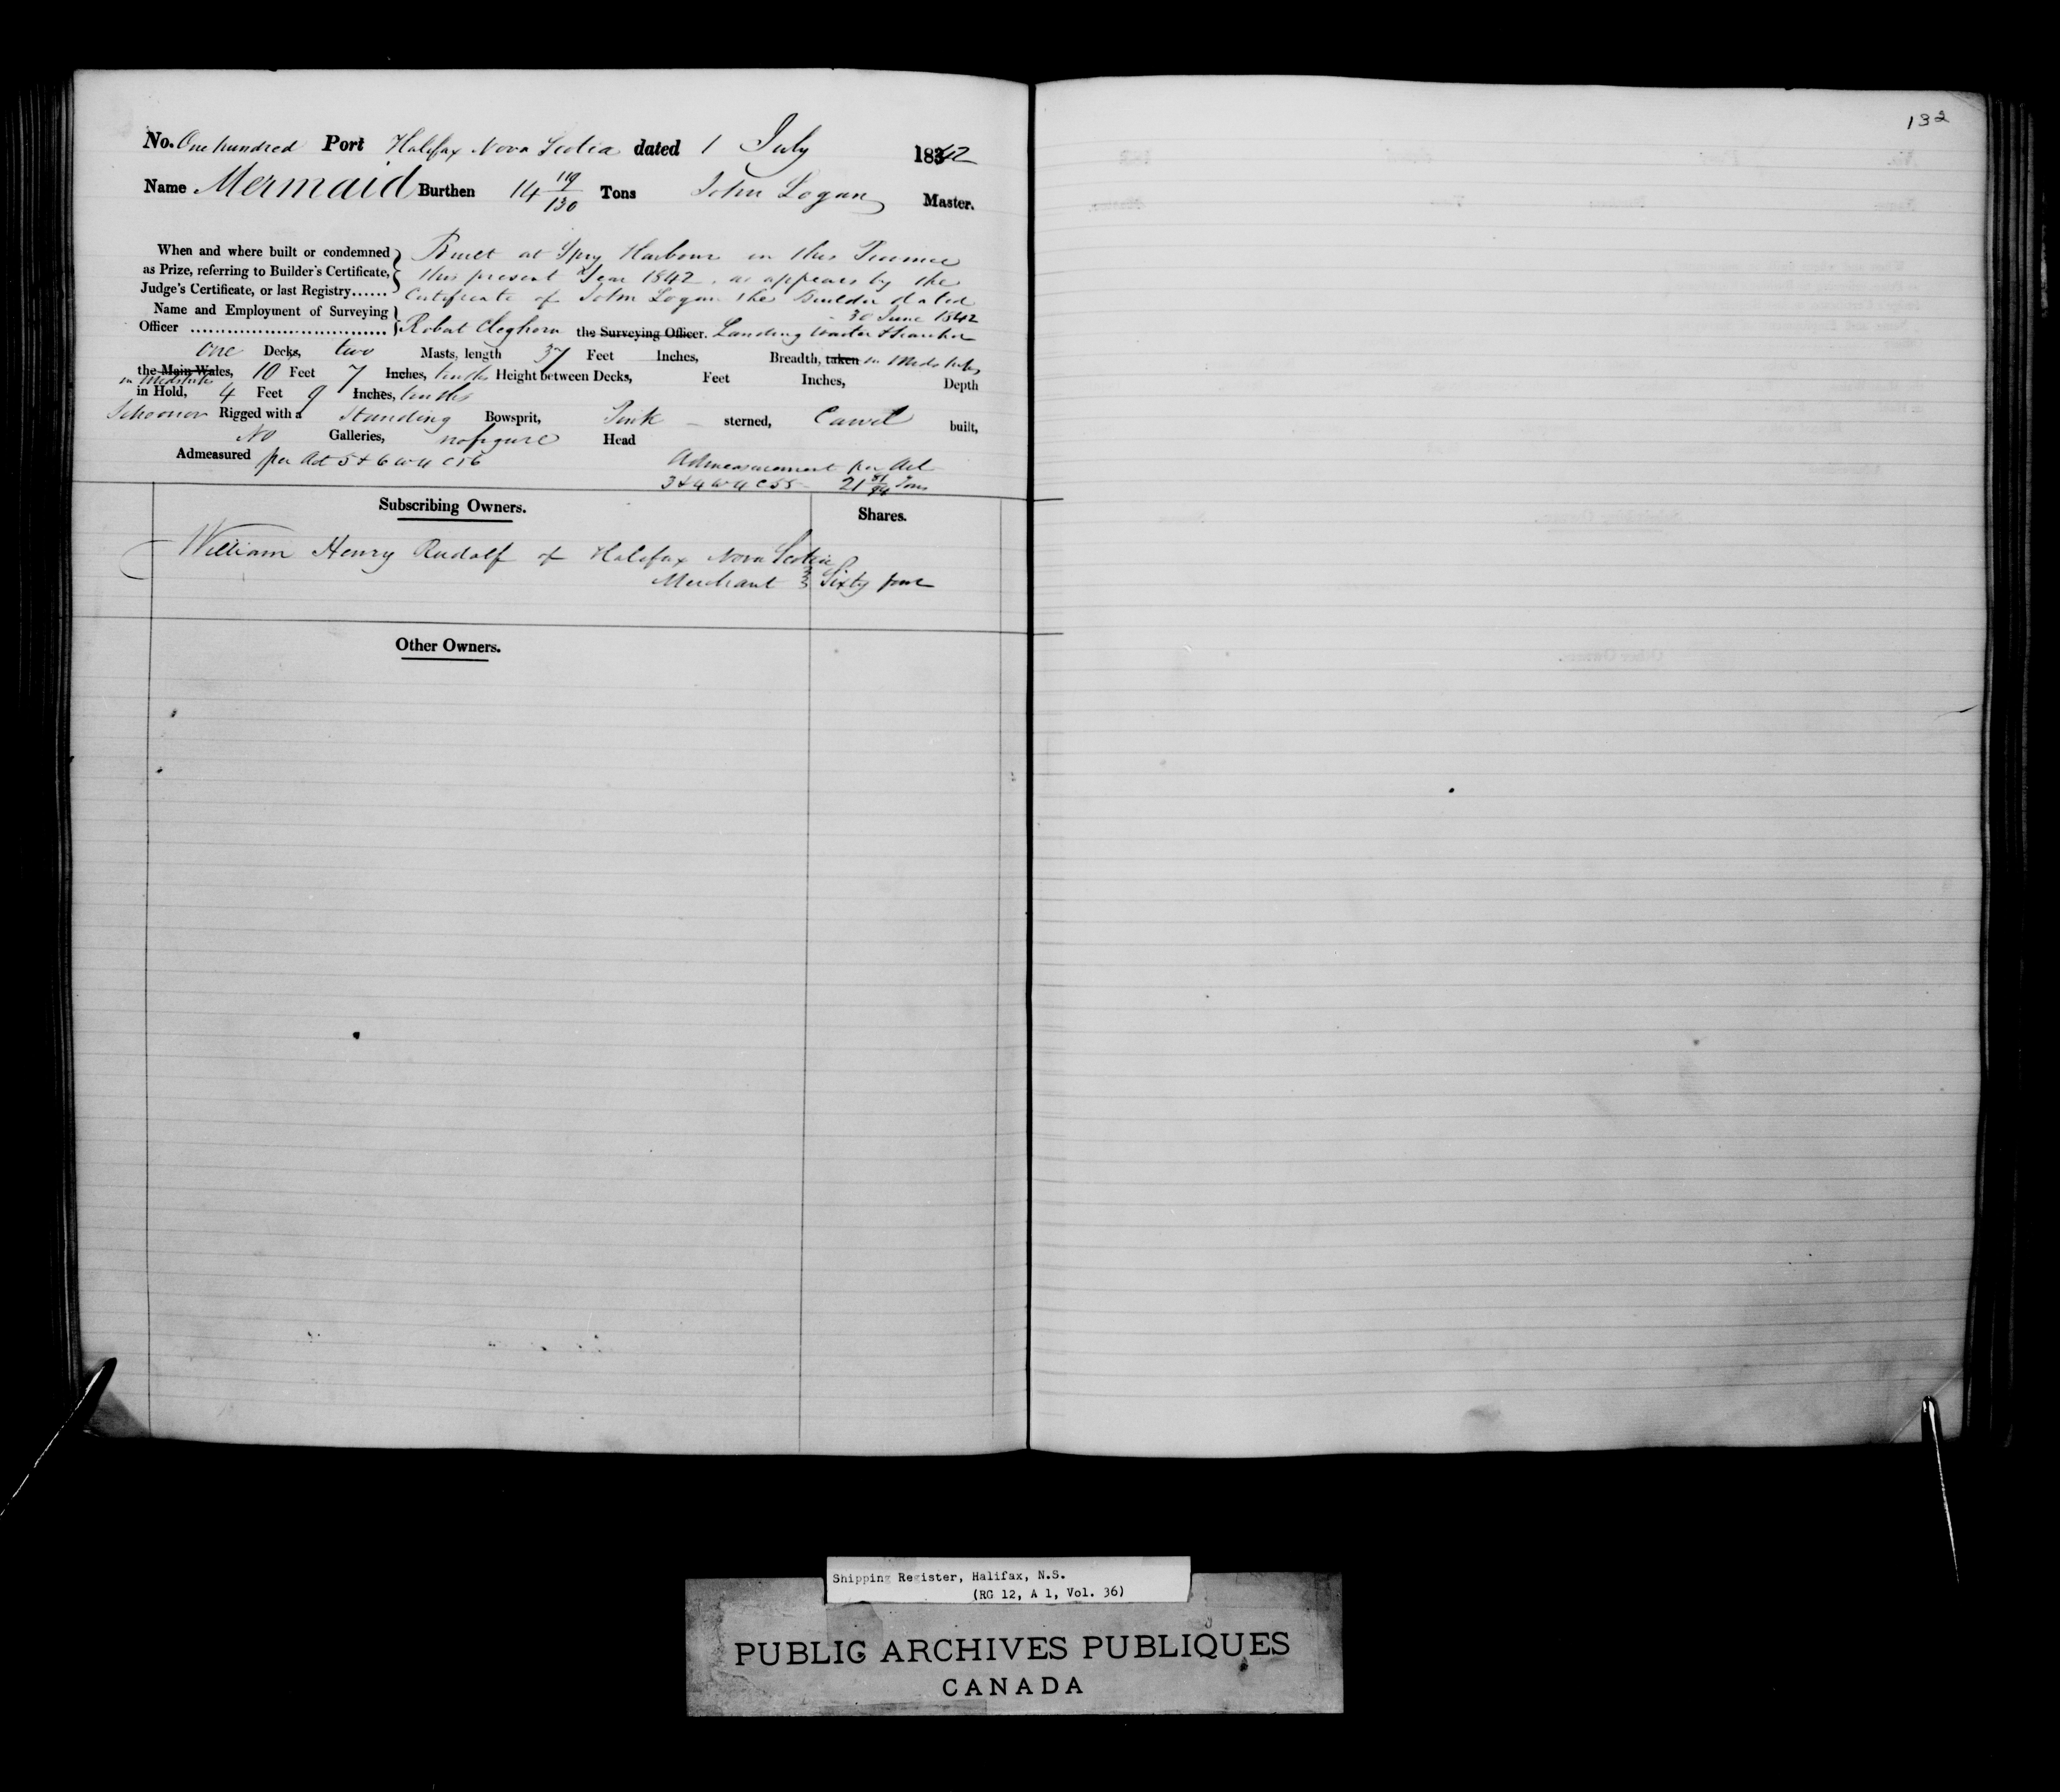 132
No. One hundred Port Halifax Nova Scotia dated 1 July 1842
Name Mermaid Burthen 14 119/130 Tons John Logan Master.
When and where built or condemned as Prize, referring to Builder's Certificate, Judge's Certificate, or last Registry......
Built at Spry Harbour in this Province
this present Year 1842, as appears by the
Certificate of John Logan the Builder dated
30 June 1842
Name and Employment of Surveying
Officer .............................. Robert Cleghorn the Surveying Officer. Landing Waiter & Searcher
One Decks, two Masts, length 37 Feet Inches, Breadth, taken in Midships
the Main Wales, 10 Feet 7 Inches, tenths Height between Decks, Feet Inches, Depth
in Midships
in Hold, 4 Feet 9 Inches, tenths
Schooner Rigged with a Standing Bowsprit, Pink sterned, Carvel built,
No Galleries, no figure Head
Admeasured per Act 5 & 6 W 4 C 56
Admeasurement per Act
3 & 4 W 4 C 55 - 21 81/94 Tons
Subscribing Owners. Shares.
William Henry Rudolf of Halifax Nova Scotia
Merchant Sixty four
Other Owners.
Shipping Register, Halifax, N.S.
(RG 12, A 1, Vol. 36)
PUBLIC ARCHIVES PUBLIQUES
CANADA